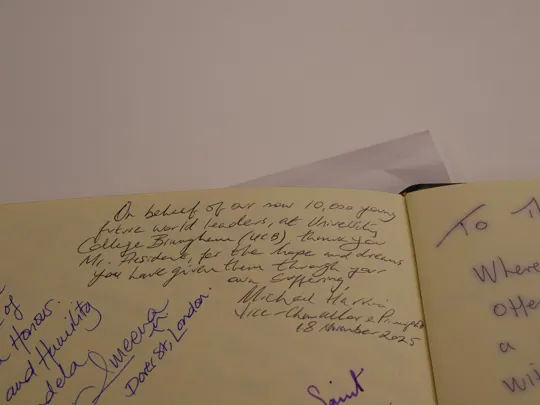 On behalf of our now 10,000 young
future world leaders, at University
College Birmingham (UCB) thank you
Mr. President, for the hope and dreams
you have given them through your
own suffering
Michael Harkin
Vice-Chancellor & Principal
18 November 2025
of
Honour.
and Humility
Ameena
Dover St, London.
Saint
To
Where
offe
a
wi